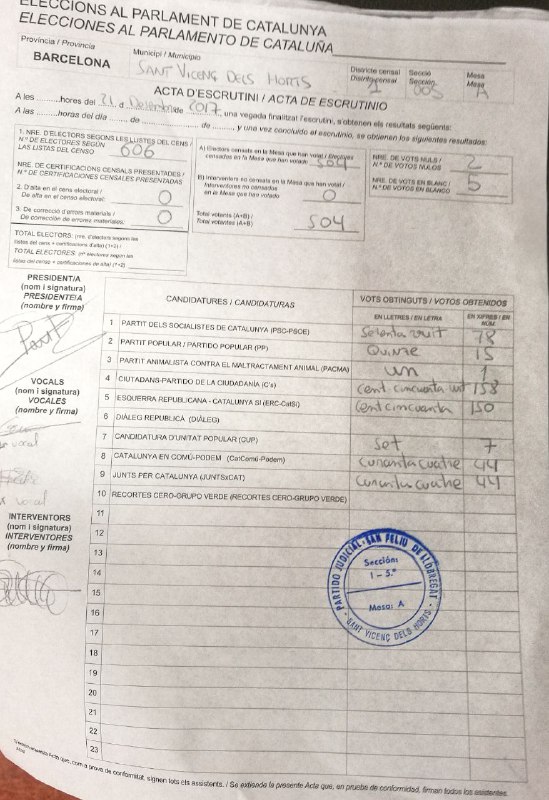 ELECCIONS AL PARLAMENT DE CATALUNYA
ELECCIONES AL PARLAMENTO DE CATALUÑA
Província / Provincia
BARCELONA
Municipi / Municipio
SANT VICENÇ DELS HORTS
Districte censal
Distrito censal
1
Secció
Sección
005
Mesa
Mesa
A
ACTA D'ESCRUTINI / ACTA DE ESCRUTINIO
A les ..........hores del 21 d Desembre de 2017, una vegada finalitzat l'escrutini, s'obtenen els resultats següents:
A las ..........horas del día ........ de .................... de ........, y una vez concluido el escrutinio, se obtienen los siguientes resultados:
1. NRE. D'ELECTORS SEGONS LES LLISTES DEL CENS /
Nº DE ELECTORES SEGÚN
LAS LISTAS DEL CENSO
606
NRE. DE CERTIFICACIONS CENSALS PRESENTADES /
Nº DE CERTIFICACIONES CENSALES PRESENTADAS
2. D'alta en el cens electoral /
De alta en el censo electoral:
0
3. De correcció d'errors materials /
De corrección de errores materiales:
0
TOTAL ELECTORS: (nre. d'electors segons les
llistes del cens + certificacions d'alta) (1+2) /
TOTAL ELECTORES: (nº electores según las
listas del censo + certificaciones de alta) (1+2)
A) Electors censats en la Mesa que han votat / Electores
censados en la Mesa que han votado
504
B) Interventors no censats en la Mesa que han votat /
Interventores no censados
en la Mesa que han votado
0
Total votants (A+B) /
Total votantes (A+B)
504
NRE. DE VOTS NULS /
Nº DE VOTOS NULOS
2
NRE. DE VOTS EN BLANC /
Nº DE VOTOS EN BLANCO
5
PRESIDENT/A
(nom i signatura)
PRESIDENTE/A
(nombre y firma)
VOCALS
(nom i signatura)
VOCALES
(nombre y firma)
vocal
vocal
INTERVENTORS
(nom i signatura)
INTERVENTORES
(nombre y firma)
CANDIDATURES / CANDIDATURAS
VOTS OBTINGUTS / VOTOS OBTENIDOS
EN LLETRES / EN LETRA
EN XIFRES / EN NÚM.
1 PARTIT DELS SOCIALISTES DE CATALUNYA (PSC-PSOE) Setenta vuit 78
2 PARTIT POPULAR / PARTIDO POPULAR (PP) Quinze 15
3 PARTIT ANIMALISTA CONTRA EL MALTRACTAMENT ANIMAL (PACMA) un 1
4 CIUTADANS-PARTIDO DE LA CIUDADANÍA (C's) cent cincuanta vuit 158
5 ESQUERRA REPUBLICANA - CATALUNYA SÍ (ERC-CatSí) cent cincuanta 150
6 DIÀLEG REPUBLICÀ (DIÀLEG)
7 CANDIDATURA D'UNITAT POPULAR (CUP) set 7
8 CATALUNYA EN COMÚ-PODEM (CatComú-Podem) curanta cuatre 44
9 JUNTS PER CATALUNYA (JUNTSxCAT) curanta cuatre 44
10 RECORTES CERO-GRUPO VERDE (RECORTES CERO-GRUPO VERDE)
11
12
13
14
15
16
17
18
19
20
21
22
23
PARTIDO JUDICIAL-SAN FELIU DE LLOBREGAT
Sección:
1 - 5.ª
Mesa: A
SANT VICENÇ DELS HORTS
Acta que, com a prova de conformitat, signen tots els assistents. / Se extiende la presente Acta que, en prueba de conformidad, firman todos los asistentes.